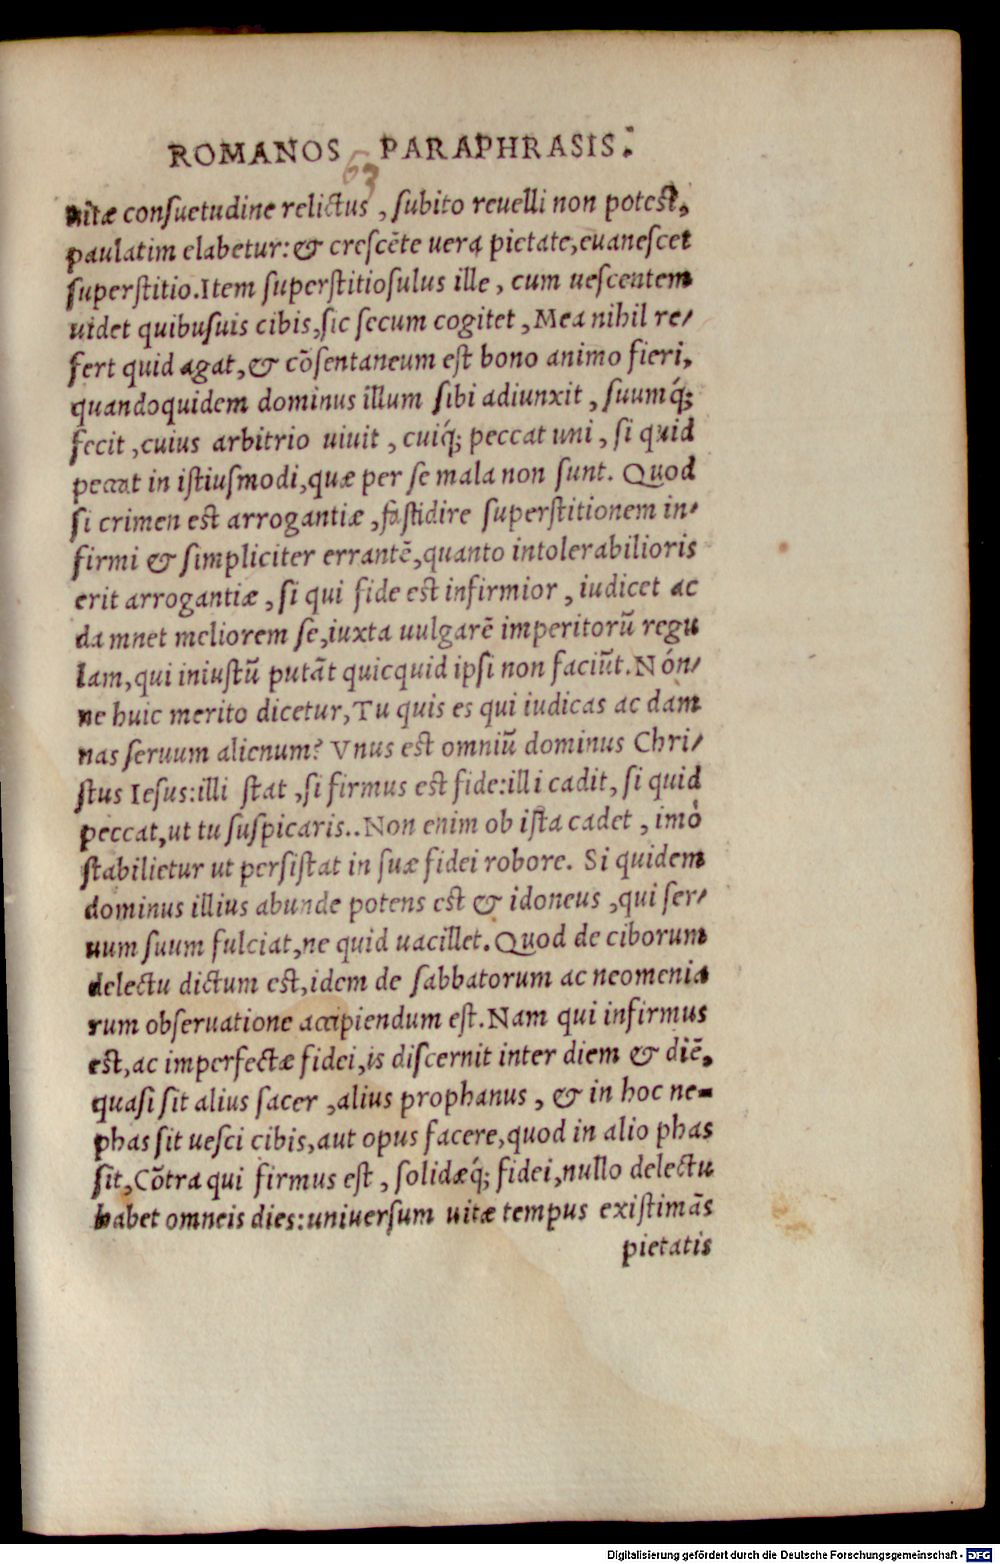 ROMANOS PARAPHRASIS.
63
uitæ consuetudine relictus, subito reuelli non potest,
paulatim elabetur: & crescēte uera pietate, euanescet
superstitio. Item superstitiosulus ille, cum uescentem
uidet quibusuis cibis, sic secum cogitet, Mea nihil re-
fert quid agat, & cōsentaneum est bono animo fieri,
quandoquidem dominus illum sibi adiunxit, suumq́;
fecit, cuius arbitrio uiuit, cuiq́; peccat uni, si quid
peccat in istiusmodi, quæ per se mala non sunt. Quod
si crimen est arrogantiæ, fastidire superstitionem in-
firmi & simpliciter errantē, quanto intolerabilioris
erit arrogantiæ, si qui fide est infirmior, iudicet ac
damnet meliorem se, iuxta uulgarē imperitorū regu
lam, qui iniustū putāt quicquid ipsi non faciūt. Nón-
ne huic merito dicetur, Tu quis es qui iudicas ac dam
nas seruum alienum? Vnus est omniū dominus Chri-
stus Iesus: illi stat, si firmus est fide: illi cadit, si quid
peccat, ut tu suspicaris.. Non enim ob ista cadet, imò
stabilietur ut persistat in suæ fidei robore. Si quidem
dominus illius abunde potens est & idoneus, qui ser-
uum suum fulciat, ne quid uacillet. Quod de ciborum
delectu dictum est, idem de sabbatorum ac neomenia
rum obseruatione accipiendum est. Nam qui infirmus
est, ac imperfectæ fidei, is discernit inter diem & diē,
quasi sit alius sacer, alius prophanus, & in hoc ne-
phas sit uesci cibis, aut opus facere, quod in alio phas
sit, Cōtra qui firmus est, solidæq́; fidei, nullo delectu
habet omneis dies: uniuersum uitæ tempus existimās
pietatis
Digitalisierung gefördert durch die Deutsche Forschungsgemeinschaft - DFG